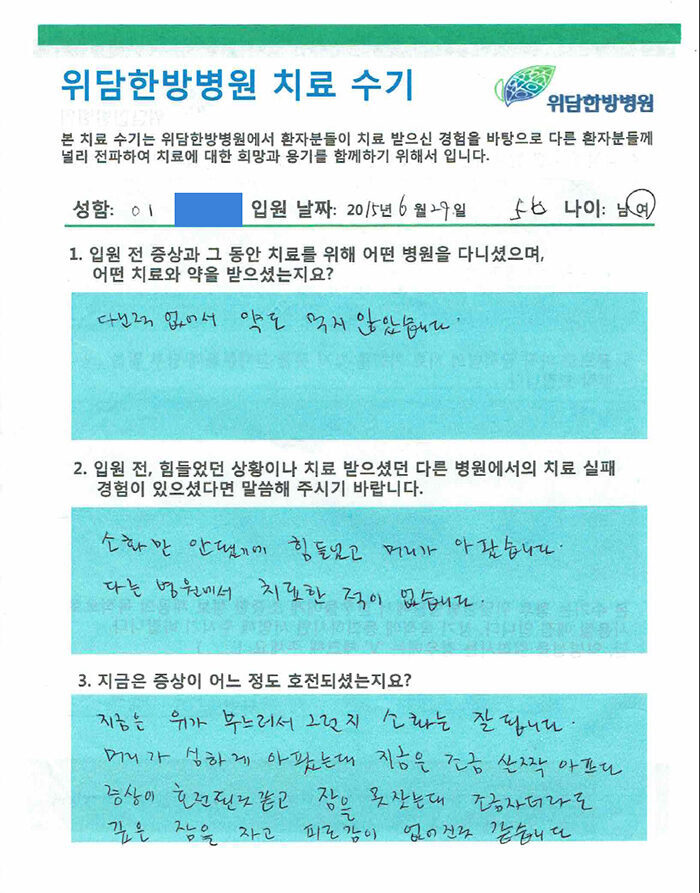 위담한방병원 치료 수기
위담한방병원
본 치료 수기는 위담한방병원에서 환자분들이 치료 받으신 경험을 바탕으로 다른 환자분들께
널리 전파하여 치료에 대한 희망과 용기를 함께하기 위해서 입니다.
성함: 이 입원 날짜: 2015년 6월 29일 나이: 남 여
1. 입원 전 증상과 그 동안 치료를 위해 어떤 병원을 다니셨으며,
어떤 치료와 약을 받으셨는지요?
다닌적 없어서 약도 먹지 않았습니다.
2. 입원 전, 힘들었던 상황이나 치료 받으셨던 다른 병원에서의 치료 실패
경험이 있으셨다면 말씀해 주시기 바랍니다.
소화만 안됐기에 힘들었고 머리가 아팠습니다.
다른 병원에서 치료한 적이 없습니다.
3. 지금은 증상이 어느 정도 호전되셨는지요?
지금은 위가 부드러서 그런지 소화는 잘 됩니다.
머리가 심하게 아팠는대 지금은 조금 살짝 아프다
증상이 호전된것같고 잠을 못잤는대 조금자더라도
깊은 잠을 자고 피로감이 없어진것 같습니다